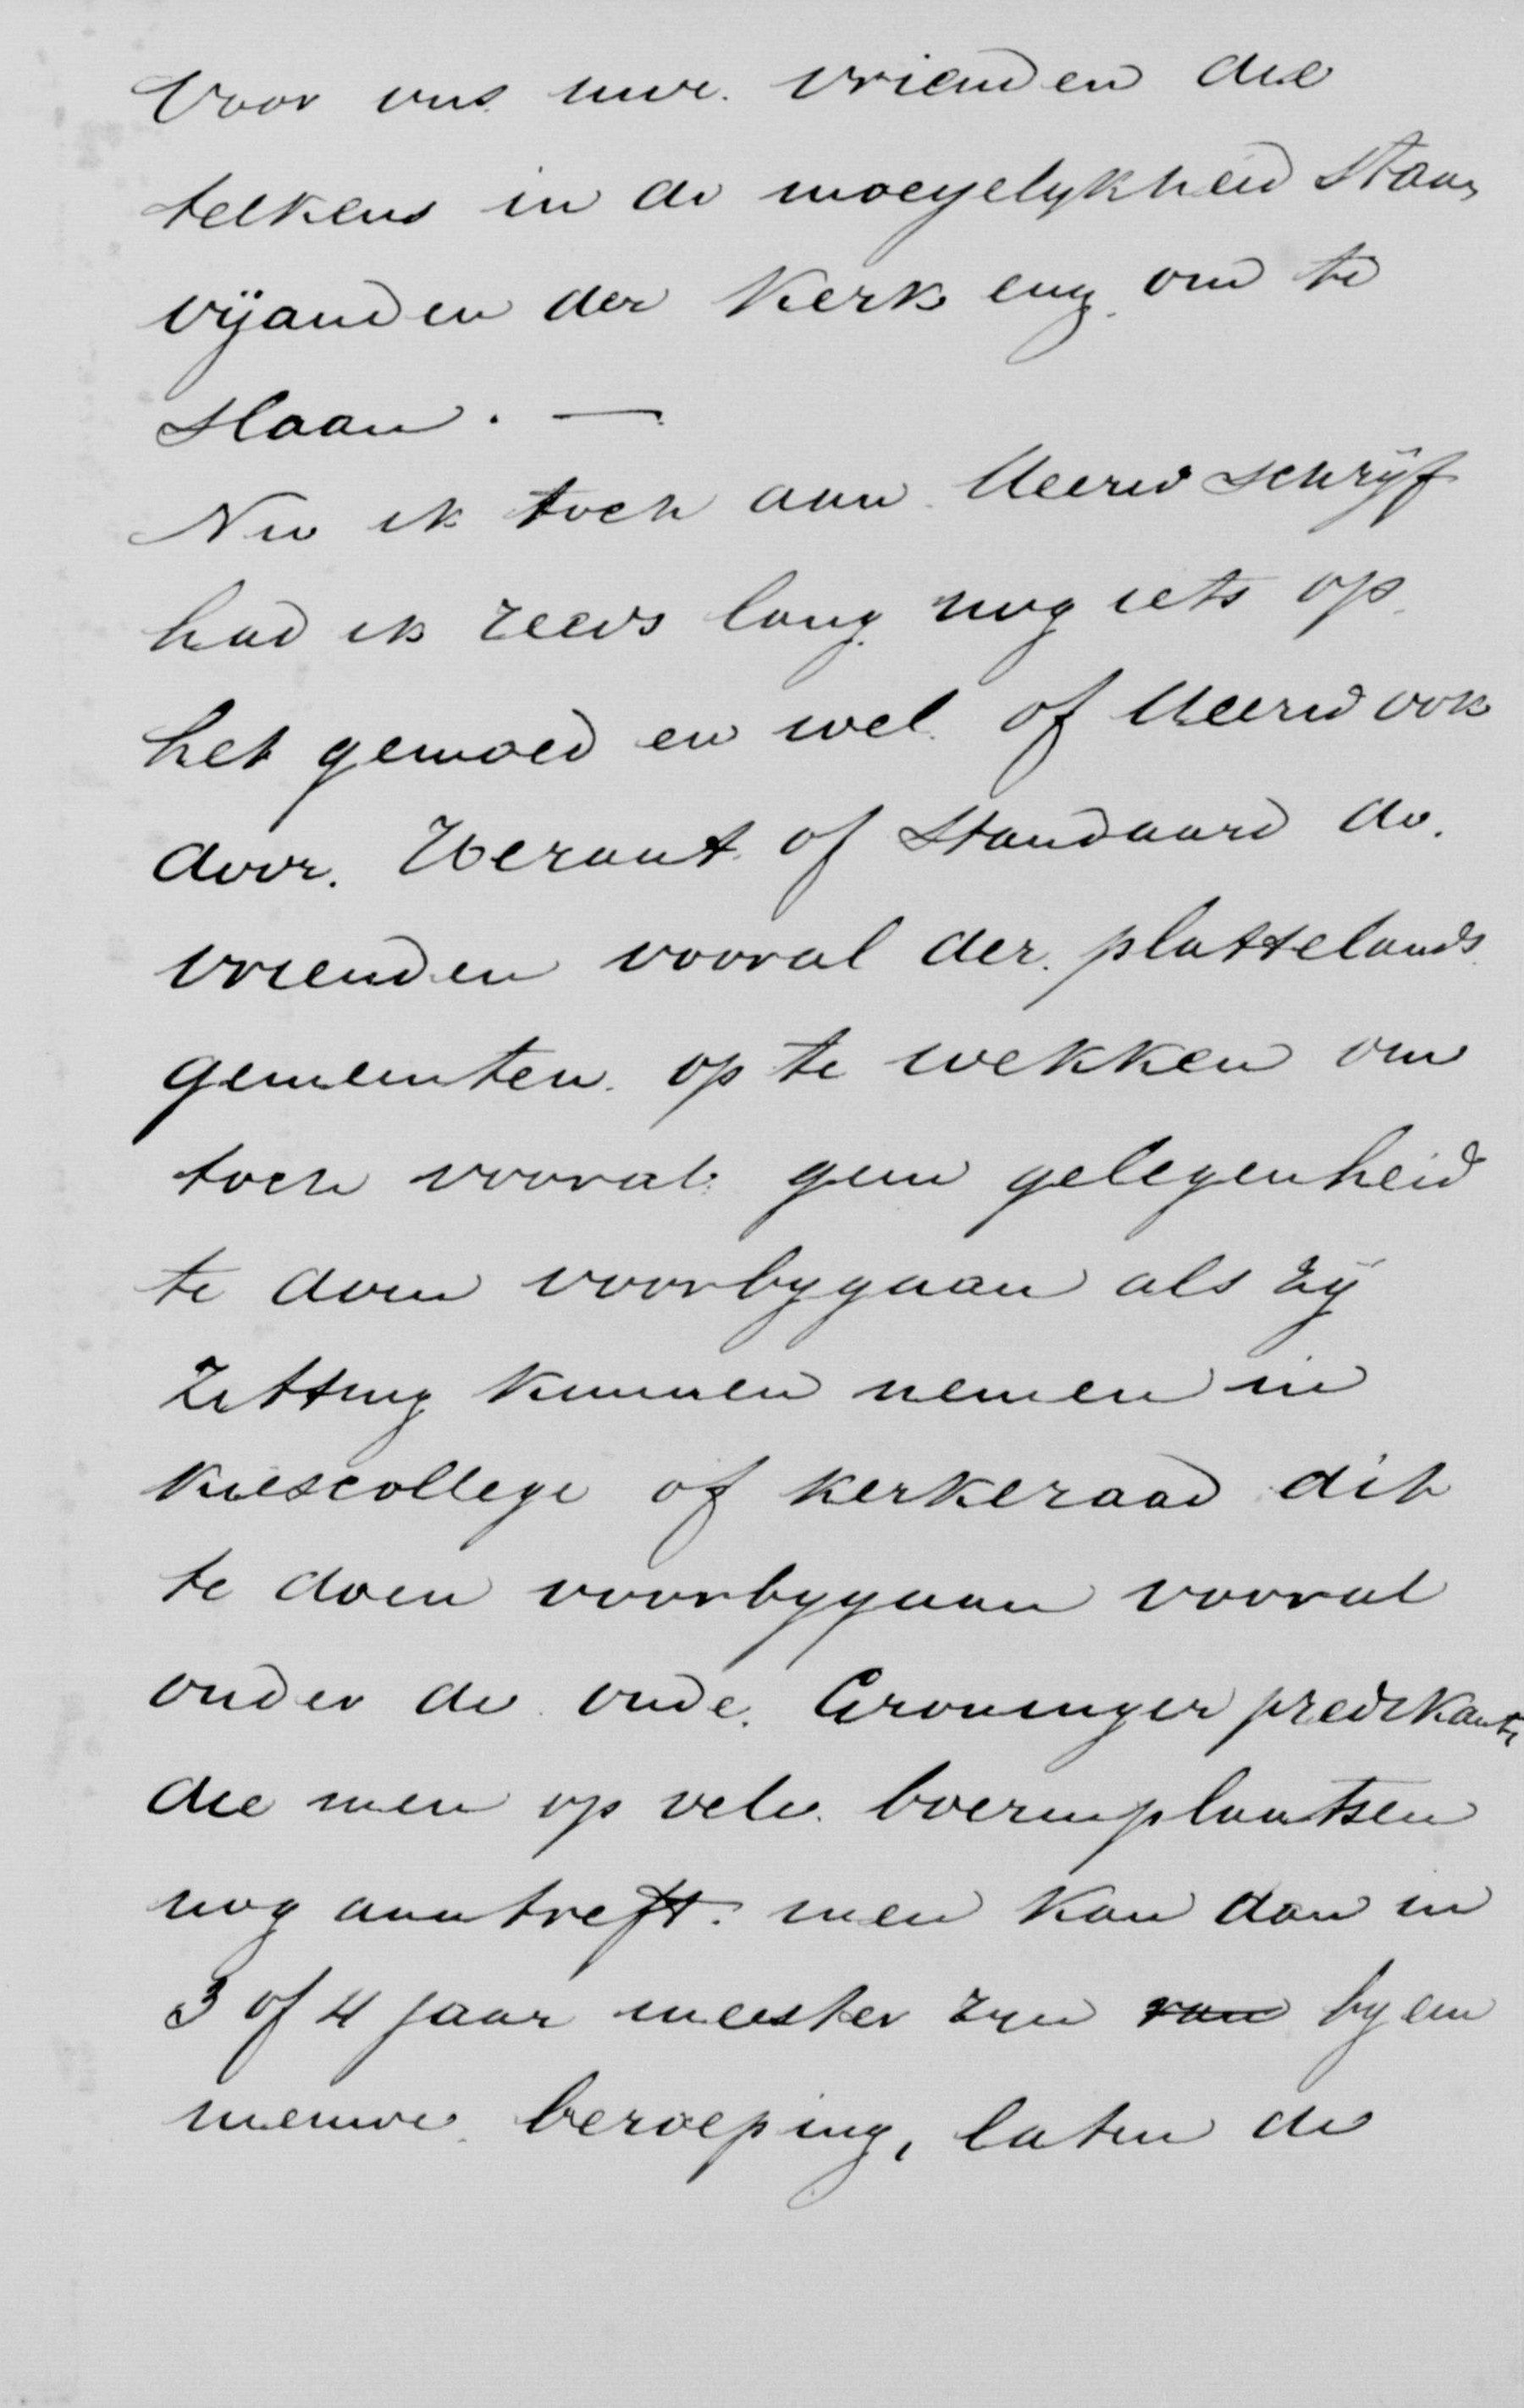 Voor ons uwe vrienden die
telkens in de moeyelykheid staan
vijanden der Kerk enz om te
slaan. —
Nu ik toch aan UEerw schrijf
had ik reeds lang nog iets op
het gemoed en wel of UEerw ook
door Heraut of Standaard de
vrienden vooral der plattelands
gemeenten op te wekken om
toch vooral geen gelegenheid
te doen voorbygaan als zij
zitting kunnen nemen in
kiescollege of kerkeraad dit
te doen voorbygaan vooral
onder de oude Groninger predikant
die men op vele boerenplaatsen
nog aantreft. men kan dan in
3 of 4 jaar meester zyn van by een
nieuwe beroeping, laten de